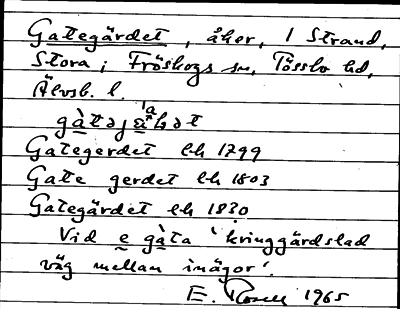 Gategärdet, åker, 1 Strand,
Stora; Fröskogs sn, Tössbo hd,
Älvsb. l.
Gategerdet lh 1799
Gate gerdet lh 1803
Gategärdet lh 1830
Vid e gàta 'kringgärdslad
väg mellan inägor'.
E. 1965